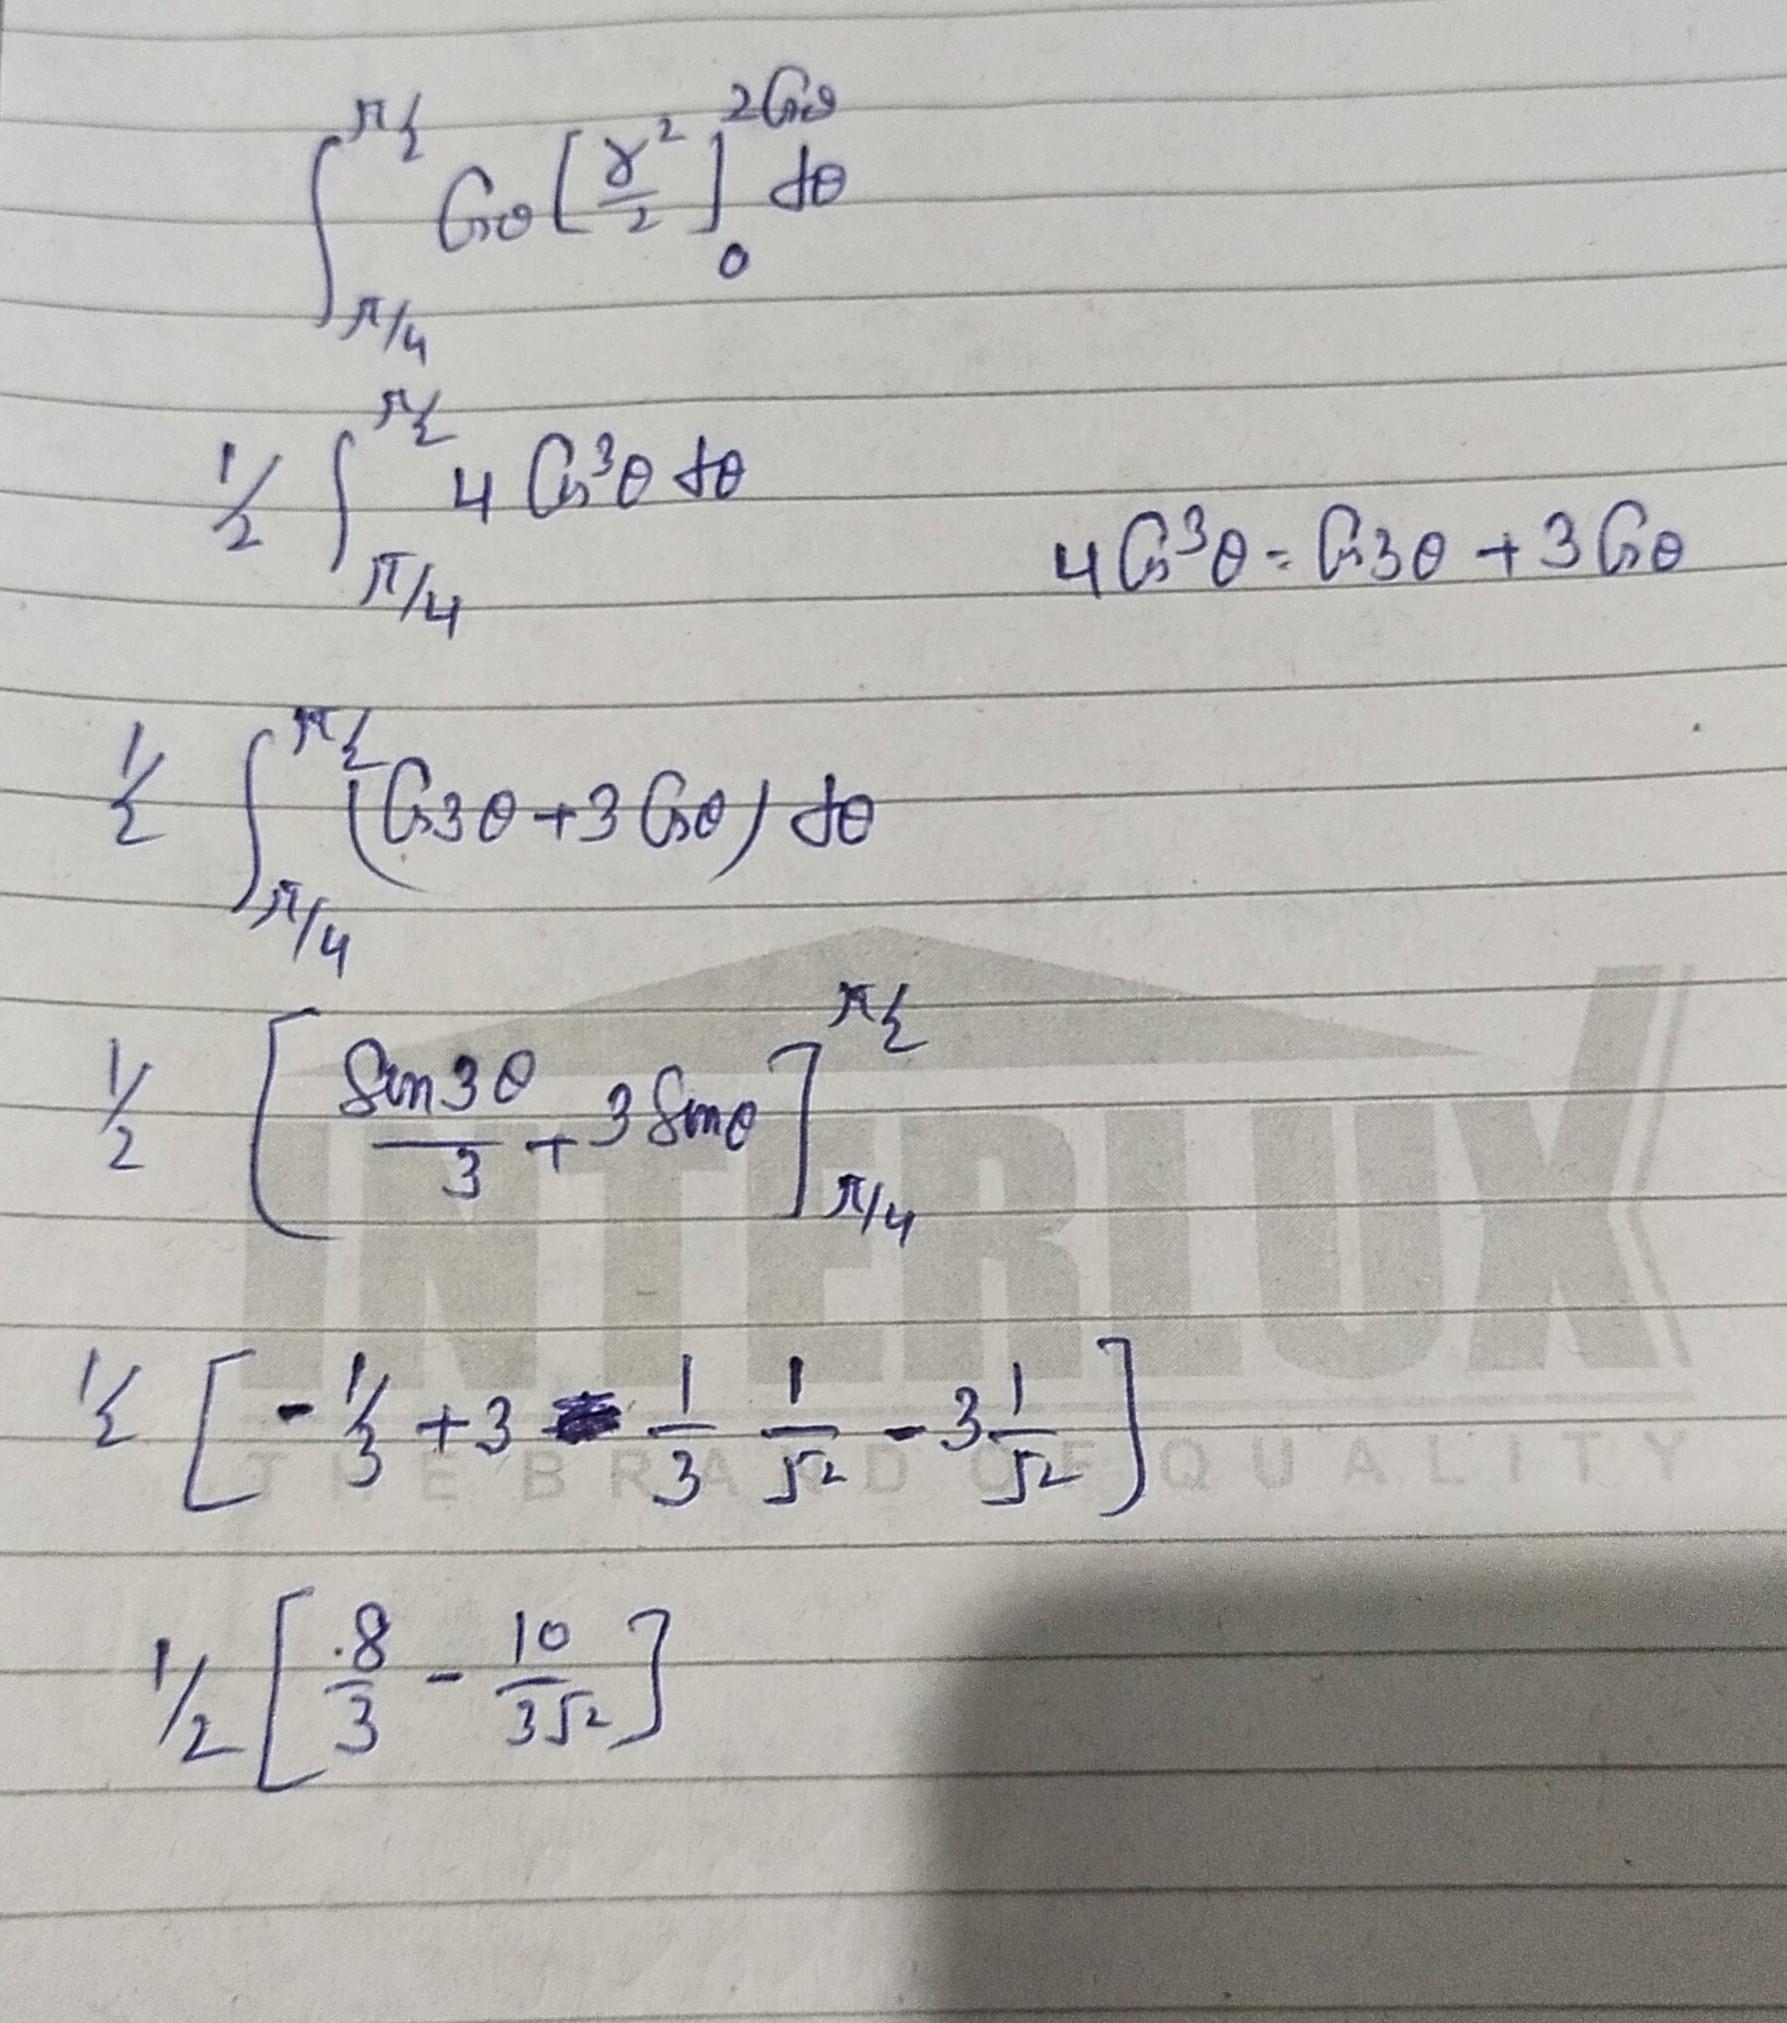 ∫_{π/4}^{π/2} Cosθ [r²/2]_0^{2Cosθ} dθ
1/2 ∫_{π/4}^{π/2} 4 Cos³θ dθ
4Cos³θ = Cos3θ + 3Cosθ
1/2 ∫_{π/4}^{π/2} (Cos3θ + 3Cosθ) dθ
1/2 [Sin3θ/3 + 3Sinθ]_{π/4}^{π/2}
1/2 [-1/3 + 3 - 1/3 1/√2 - 3 1/√2]
1/2 [8/3 - 10/3√2]
INTERLUX
THE BRAND OF QUALITY